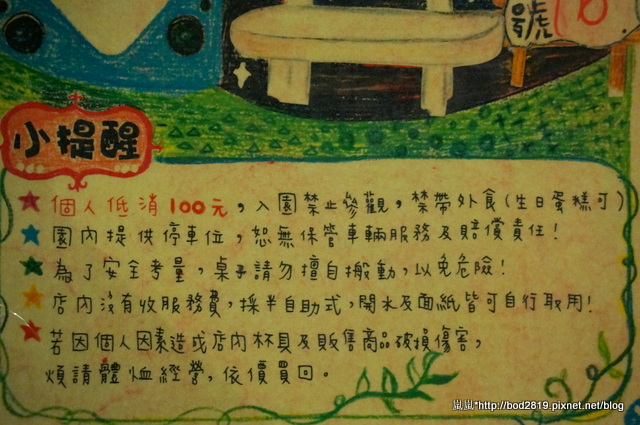 號
小提醒
個人低消100元，入園禁止參觀，禁帶外食(生日蛋糕可)
園內提供停車位，恕無保管車輛服務及賠償責任!
為了安全考量，桌子請勿擅自搬動，以免危險!
店內沒有收服務費，採半自助式，開水及面紙皆可自行取用!
若因個人因素造成店內杯具及販售商品破損傷害，
煩請體恤經營，依價買回。
嵐嵐"http://bod2819.pixnet.net/blog